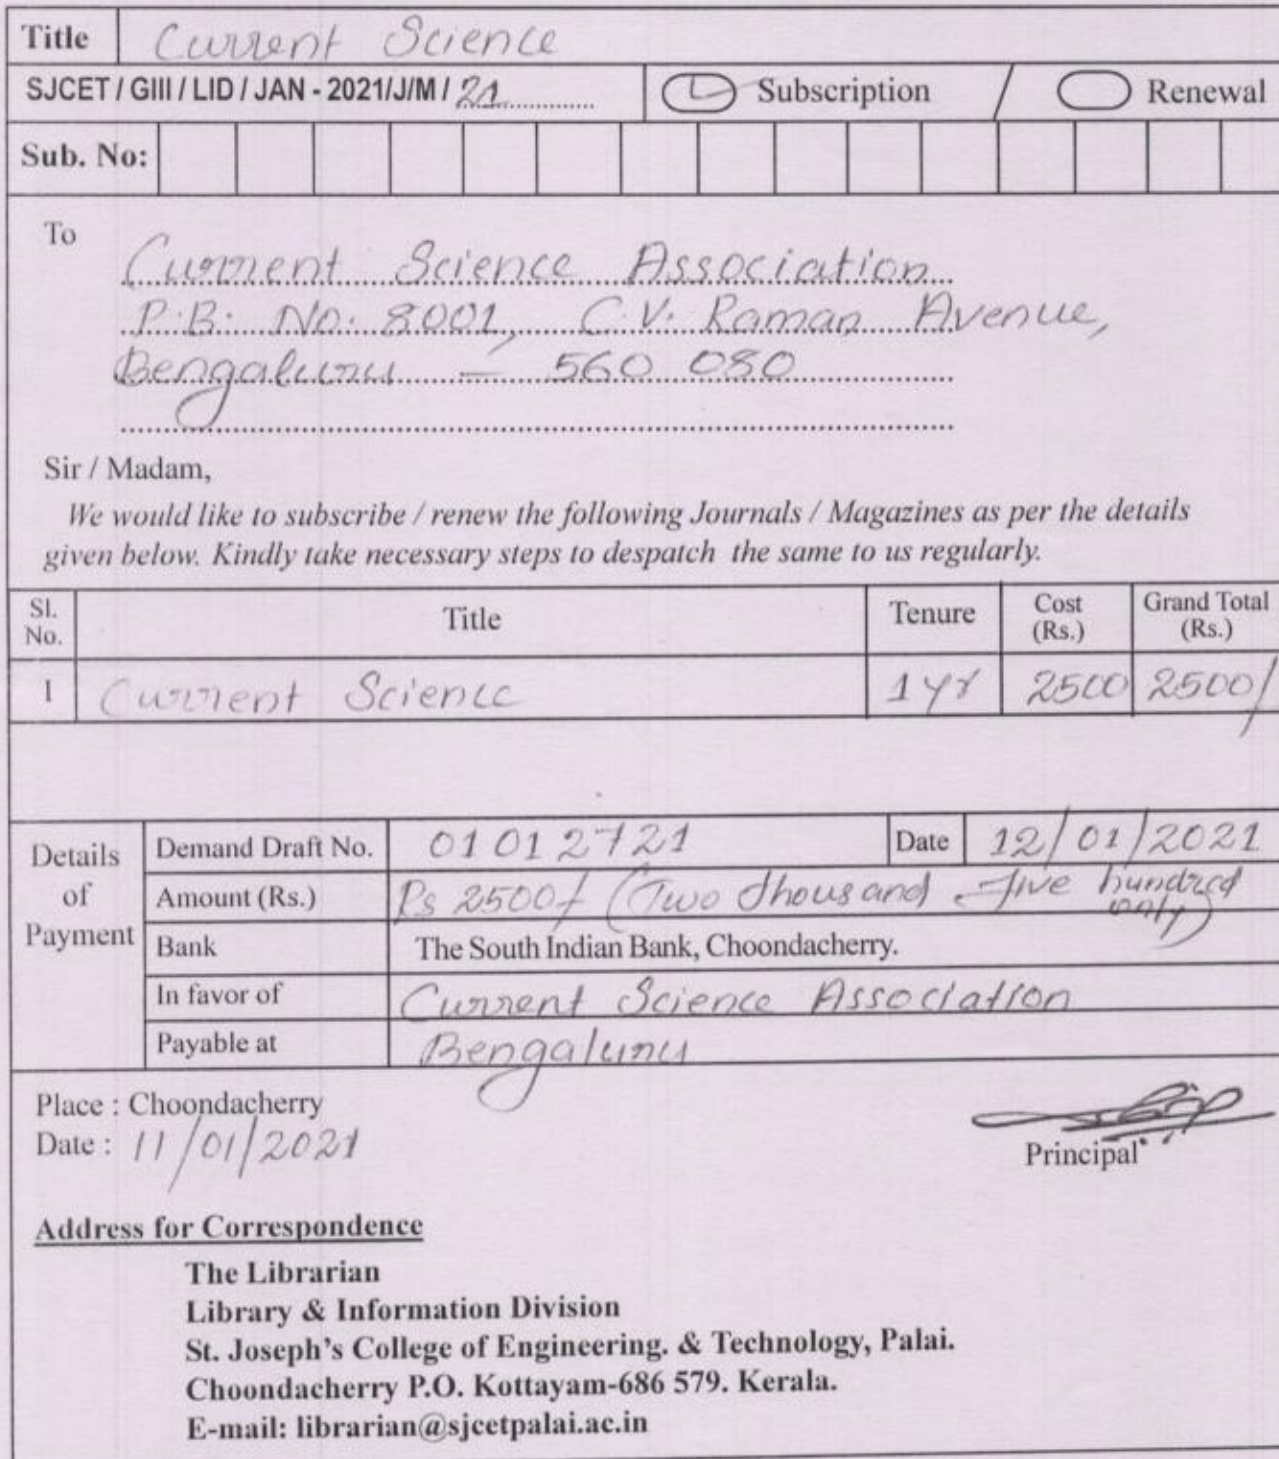 Title Current Science
SJCET / GIII / LID / JAN - 2021/J/M / 21 Subscription / Renewal
Sub. No:
To
Current Science Association
P.B. No. 8001, C.V. Raman Avenue,
Bengaluru - 560 080
Sir / Madam,
We would like to subscribe / renew the following Journals / Magazines as per the details
given below. Kindly take necessary steps to despatch the same to us regularly.
Sl. No. Title Tenure Cost (Rs.) Grand Total (Rs.)
1 Current Science 1 yr 2500 2500/
Details of Payment
Demand Draft No. 01012721 Date 12/01/2021
Amount (Rs.) Rs 2500/- (Two Thousand Five hundred only)
Bank The South Indian Bank, Choondacherry.
In favor of Current Science Association
Payable at Bengaluru
Place : Choondacherry
Date : 11/01/2021
Principal
Address for Correspondence
The Librarian
Library & Information Division
St. Joseph's College of Engineering. & Technology, Palai.
Choondacherry P.O. Kottayam-686 579. Kerala.
E-mail: librarian@sjcetpalai.ac.in